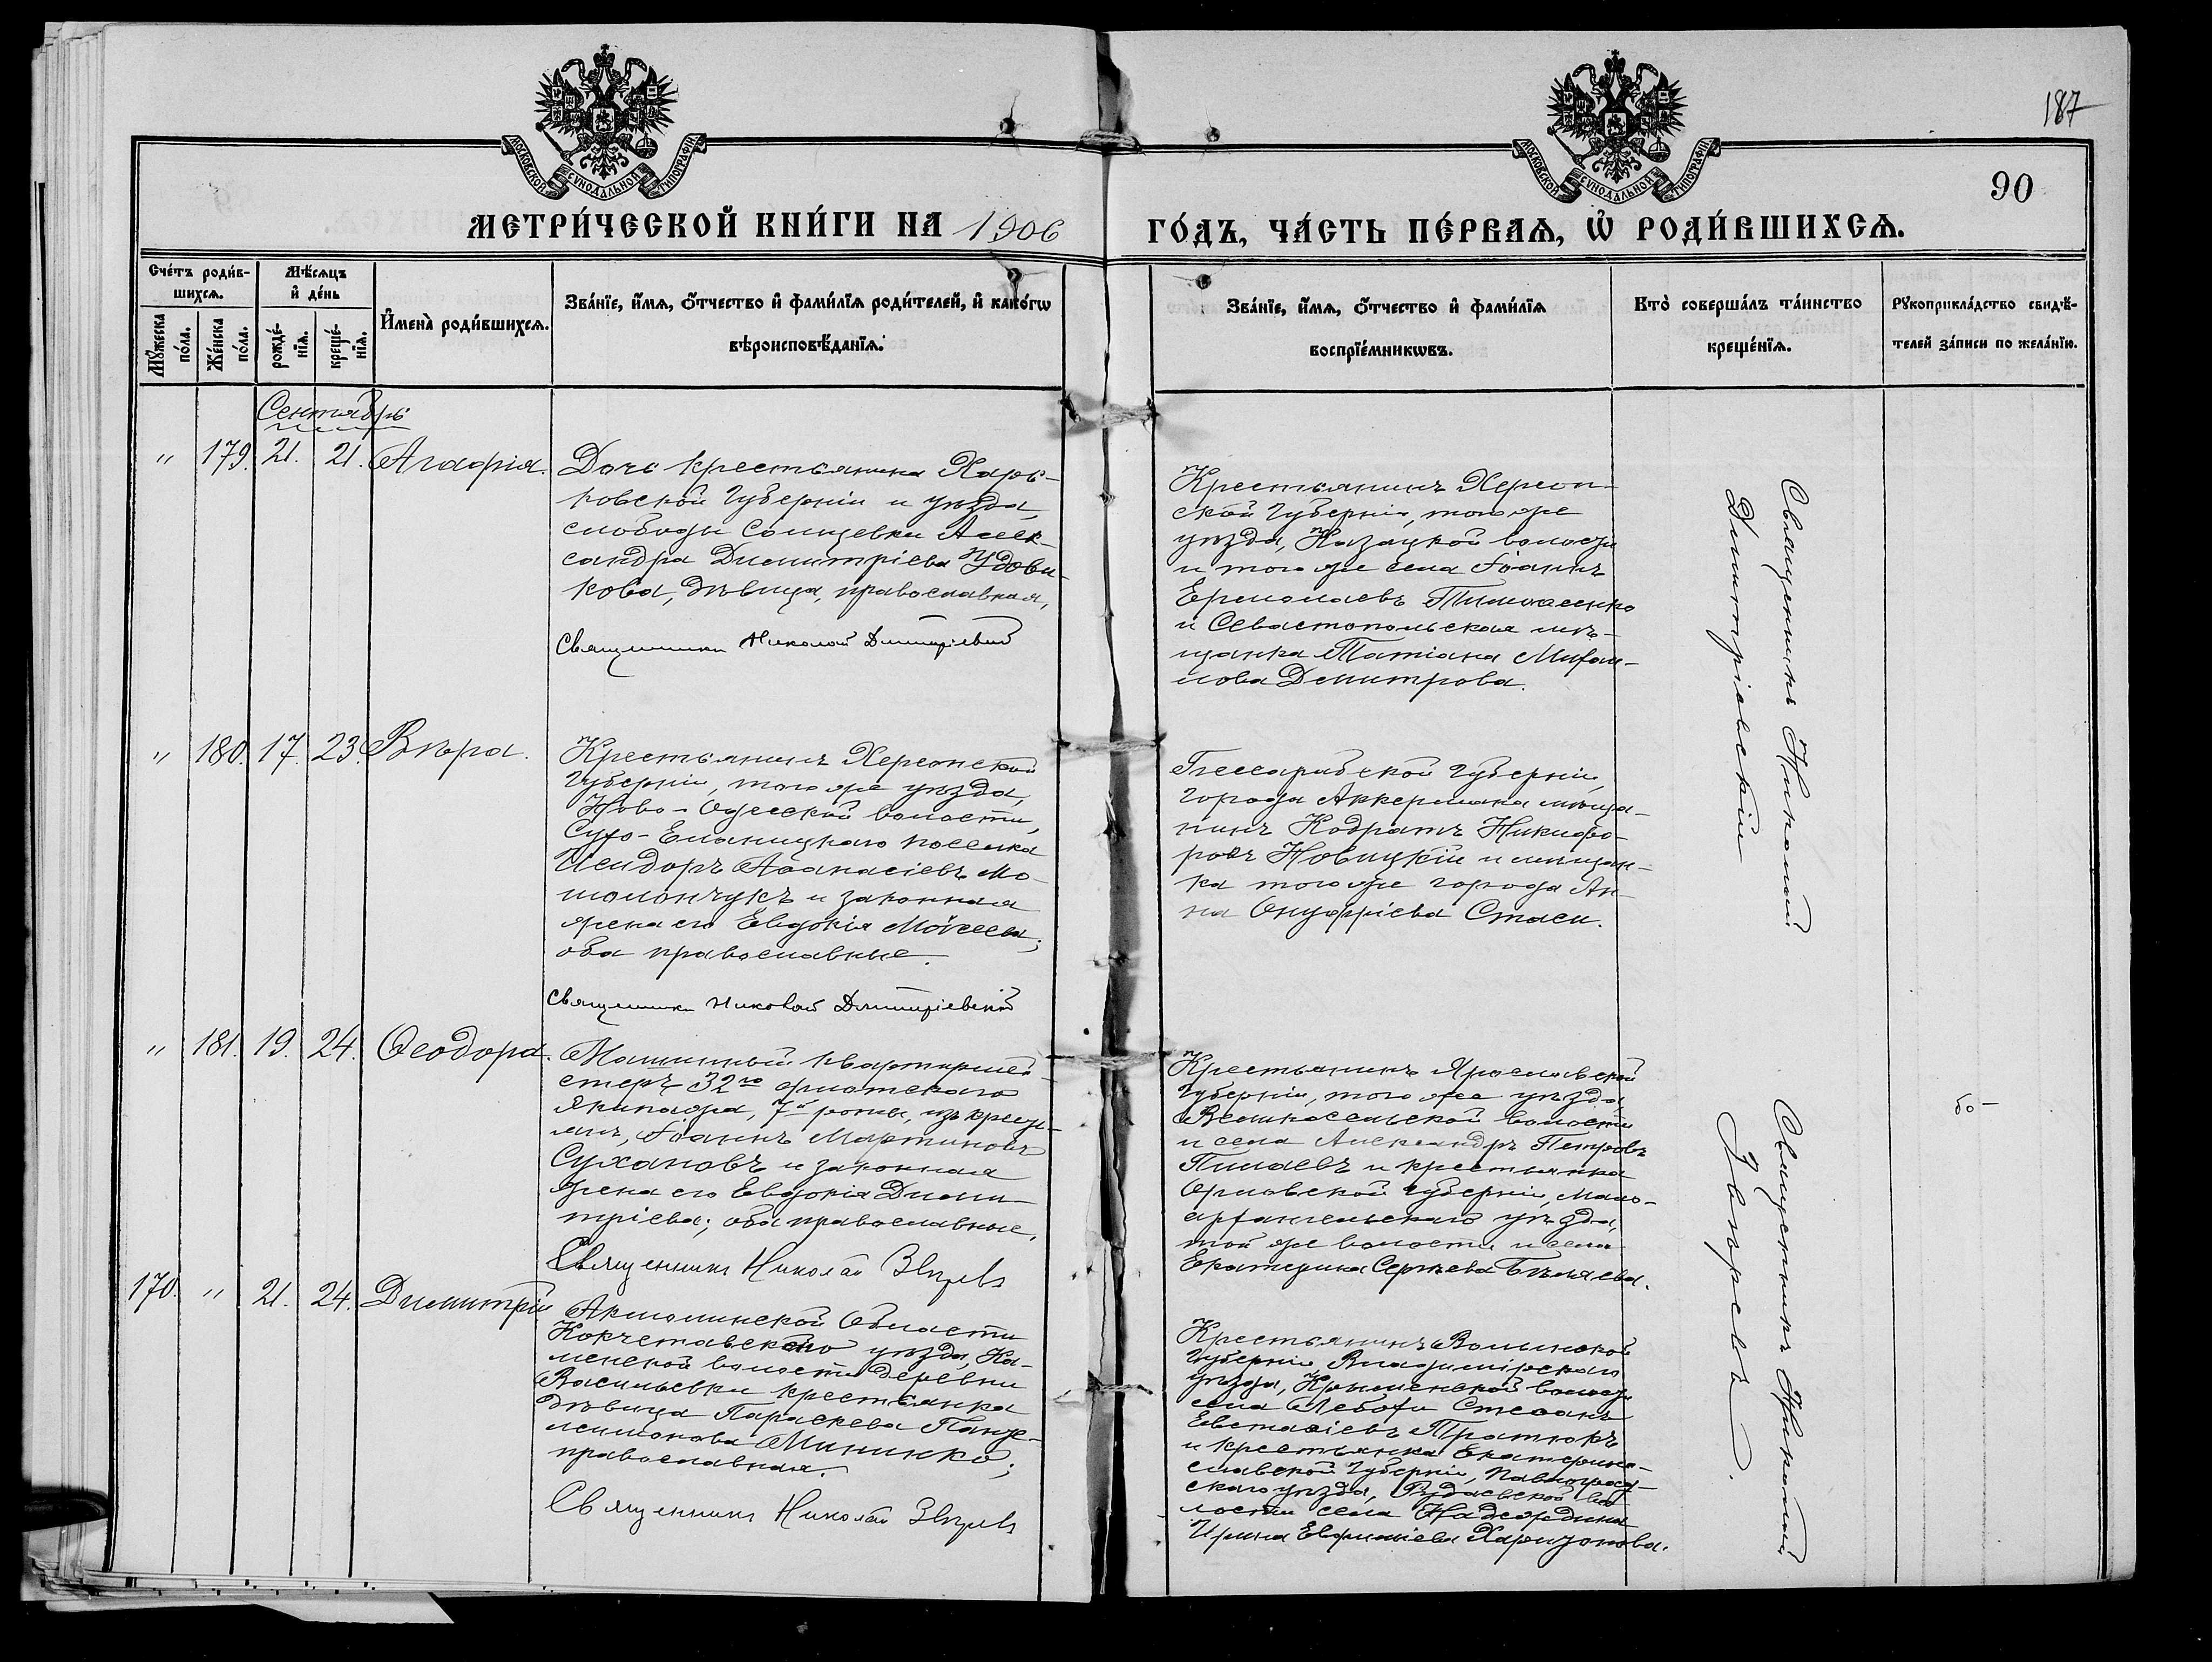 187
90
МОСКОВСКОЙ СѴНОДАЛЬНОЙ ТИПОГРАФІИ
МОСКОВСКОЙ СѴНОДАЛЬНОЙ ТИПОГРАФІИ
МЕТРИ́ЧЕСКОЙ КНИ́ГИ НА 1906
ГО́ДЪ, ЧА́СТЬ ПЕ́РВАѦ, Ѽ РОДИ́ВШИХСѦ.
Сче́тъ роди́в-
шихсѧ.
Мѣ́сѧцъ
и҆ де́нь
Мꙋ́жеска
по́ла.
Же́нска
по́ла.
рожде́-
нїѧ.
креще́-
нїѧ.
И҆мена̀ роди́вшихсѧ.
Зва́нїе, и҆́мѧ, ѻ҆́тчество и҆ фами́лїѧ роди́телей, и҆ како́гѡ
вѣроисповѣ́данїѧ.
Зва́нїе, и҆́мѧ, ѻ҆́тчество и҆ фами́лїѧ
воспрїе́мникѡвъ.
Кто̀ соверша́лъ та́инство
креще́нїѧ.
Рꙋкоприкла́дство свидѣ́-
телей за́писи по жела́нїю.
Сентябрь
" 179. 21. 21. Агафія.
Дочь крестьянина Харь-
ковской Губерніи и уѣзда,
слободы Солнцевки Алек-
сандра Димитріева Удови-
кова, дѣвица, православная,
Священникъ Николай Димитріевскій
Крестьянинъ Херсон-
ской Губерніи, того же
уѣзда, Казацкой волости
и того же села Іоаннъ
Ермолаевъ Тимошенко
и Севастопольская мѣ-
щанка Татіана Михаи-
лова Дмитрова.
Священникъ Николай
Димитріевскій
" 180. 17. 23. Вѣра.
Крестьянинъ Херсонской
Губерніи, того же уѣзда,
Ново-Одесской волости,
Сухо-Еланецкаго поселка
Исидоръ Аѳанасіевъ Мо-
шолончукъ и законная
жена его Евдокія Моисеева;
оба православные.
Священникъ Николай Димитріевскій
Бессарабской Губерніи,
города Аккермана мѣща-
нинъ Кодратъ Никифо-
ровъ Новицкій и мѣщан-
ка того же города Ан-
на Онуфріева Стаси.
" 181. 19. 24. Ѳеодора.
Машинный квартирмей-
стеръ 32го флотскаго
экипажа, 7й роты, изъ крестьянъ,
Іоаннъ Мартиновъ
Сухановъ и законная
жена его Евдокія Дими-
тріева; оба православные,
Священникъ Николай Звѣревъ
Крестьянинъ Ярославской
Губерніи, того же уѣзда,
Великосельской волости
и села Александръ Петровъ
Пилаевъ и крестьянка
Орловской губерніи, Мало-
архангельскаго уѣзда,
той же волости и села
Екатерина Сергѣева Бѣляева.
Священникъ Николай
Звѣревъ.
170. " 21. 24. Димитрій
Акмолинской Области
Кокчетавскаго уѣзда, Ка-
менской волости деревни
Васильевки крестьянка
дѣвица Параскева Панте-
леимонова Мининко;
православная.
Священникъ Николай Звѣревъ
Крестьянинъ Волынской
Губерніи, Владимірскаго
уѣзда, волости
села Стефанъ
Евстафіевъ Пратюкъ
и крестьянка Екатерино-
славской Губерніи, Павлоград-
скаго уѣзда, во-
лости села Надеждина
Ирина Евфиміева Харизонова.